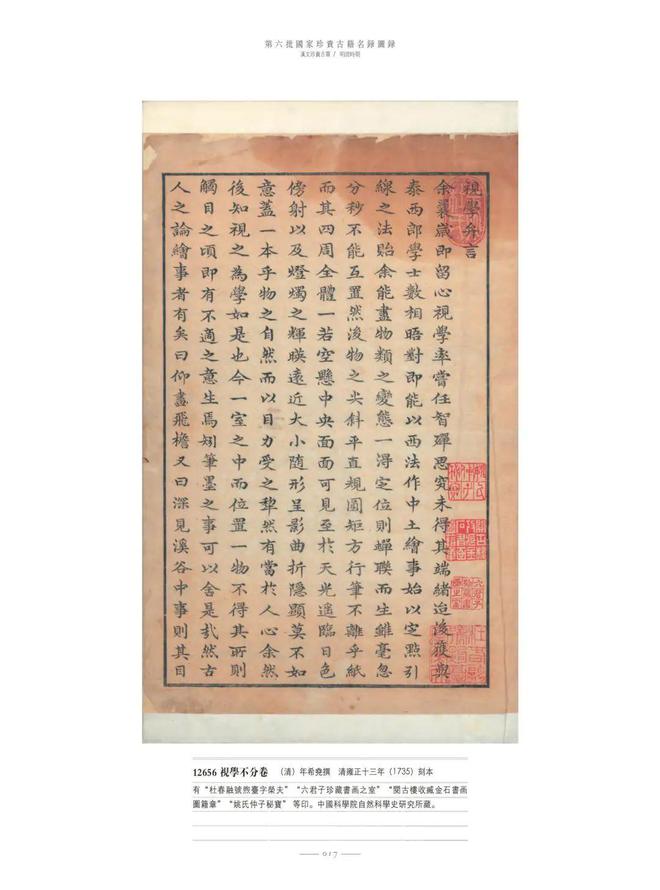 第六批國家珍貴古籍名録圖録
漢文珍貴古籍 / 明清時期
視學弁言
余曩歲即留心視學率嘗任智殫思究未得其端緒迨後獲與
泰西郎學士數相晤對即能以西法作中土繪事始以定點引
線之法貽余能盡物類之變態一得定位則蟬聯而生雖毫忽
分秒不能互置然後物之尖斜平直規圓矩方行筆不離乎紙
而其四周全體一若空懸中央面面可見至於天光遙臨日色
傍射以及燈燭之輝映遠近大小隨形呈影曲折隱顯莫不如
意蓋一本乎物之自然而以目力受之犂然有當於人心余然
後知視之為學如是也今一室之中而位置一物不得其所則
觸目之頃即有不適之意生焉矧筆墨之事可以舍是哉然古
人之論繪事者有矣曰仰畫飛檐又曰深見溪谷中事則其目
12656 視學不分卷 （清）年希堯撰 清雍正十三年（1735）刻本
有“杜春融號煦臺字榮夫”“六君子珍藏書画之室”“閱古樓收臧金石書画
圖籍章”“姚氏仲子秘寶”等印。中國科學院自然科學史研究所藏。
017